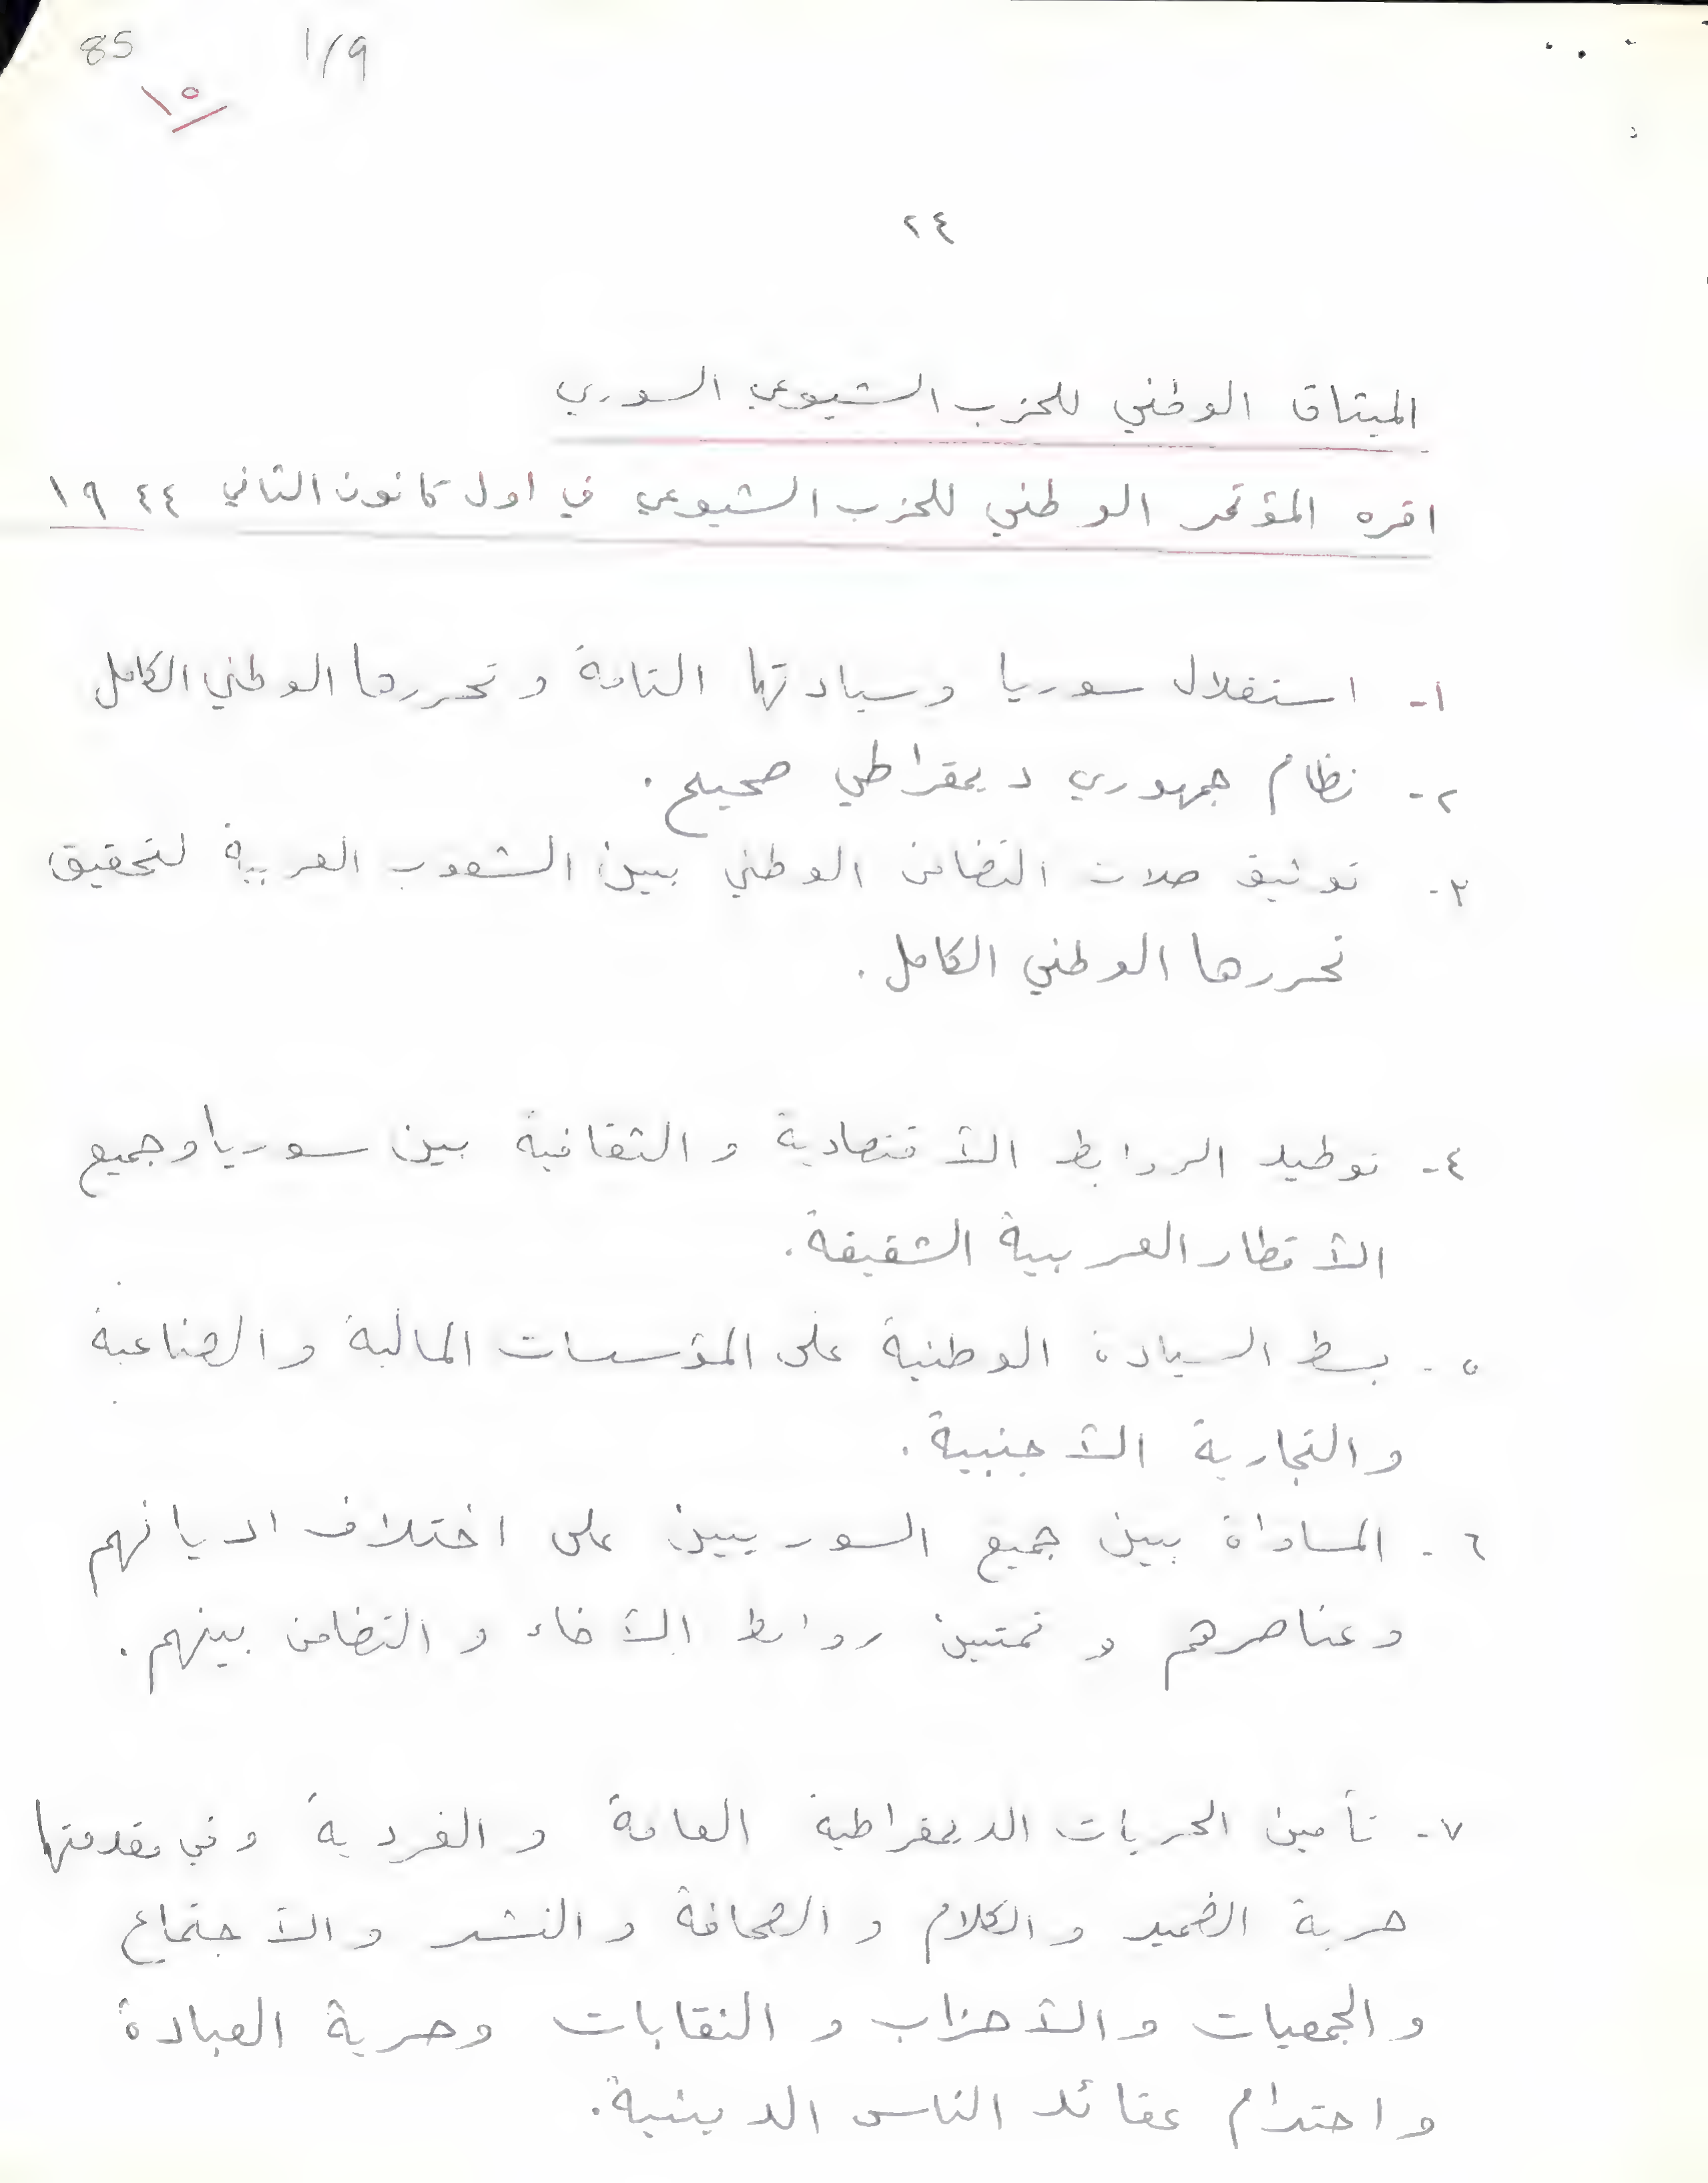 85 1/9
١٥
٢٤
الميثاق الوطني للحزب الشيوعي السوري
اقره المؤتمر الوطني للحزب الشيوعي في اول كانون الثاني ١٩٤٤
١- استقلال سوريا وسيادتها التامة وتحررها الوطني الكامل
٢- نظام جمهوري ديمقراطي صحيح.
٣- توثيق صلات التضامن الوطني بين الشعوب العربية لتحقيق
تحررها الوطني الكامل.
٤- توطيد الروابط الأقتصادية والثقافية بين سوريا وجميع
الأقطار العربية الشقيقة.
٥- بسط السيادة الوطنية على المؤسسات المالية والصناعية
والتجارية الأجنبية.
٦- المساواة بين جميع السوريين على اختلاف اديانهم
وعناصرهم وتمتين روابط الأخاء والتضامن بينهم.
٧- تأمين الحريات الديمقراطية العامة والفردية وفي مقدمتها
حرية الضمير والكلام والصحافة والنشر والأجتماع
والجمعيات والأحزاب والنقابات وحرية العبادة
واحترام عقائد الناس الدينية.